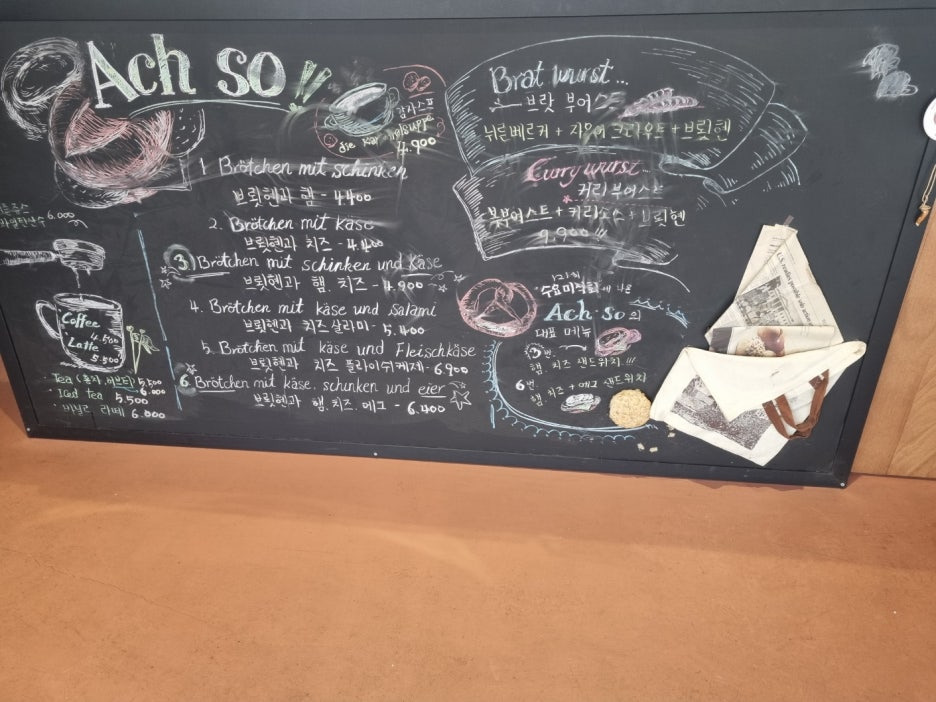 Ach so!!
감자스프
4.900
1. Brötchen mit schinken
브릿헨과 햄 - 4400
2. Brötchen mit käse
브릿헨과 치즈 - 4.400
3. Brötchen mit schinken und Käse
브릿헨과 햄. 치즈 - 4.900
4. Brötchen mit käse und salami
브릿헨과 치즈 살라미 - 5.400
5. Brötchen mit käse und Fleischkäse
브릿헨과 치즈 플라이쉬케제 - 6.900
6. Brötchen mit käse. schunken und eier
브릿헨과 햄. 치즈. 에그 - 6.400
6.000
Coffee 4.500
Latte 5.500
Tea 5.500
Iced tea 6.000
5.500
바닐라 라떼 6.000
Brat wurst...
브랏 부어스트
뉘른베르거 + 자우어 크라우트 + 브릿헨
Curry wurst...
커리부어스트
+ 커리소스 + 브릿헨
9.900 !!!
수요미식회에 나온
Ach-so의
대표 메뉴
3번.
햄 치즈 샌드위치 !!!
6번.
햄 치즈 + 에그 샌드위치